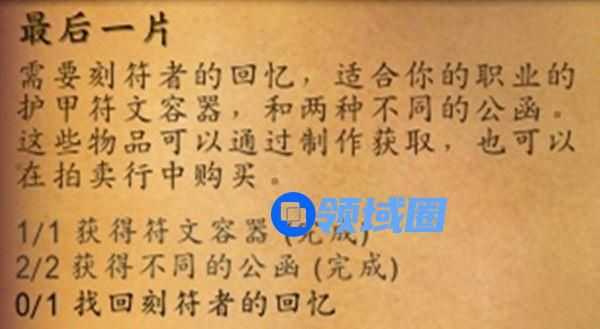 最后一片
需要刻符者的回忆，适合你的职业的
护甲符文容器，和两种不同的公函。
这些物品可以通过制作获取，也可以
在拍卖行中购买。
领域圈
1/1 获得符文容器 (完成)
2/2 获得不同的公函 (完成)
0/1 找回刻符者的回忆